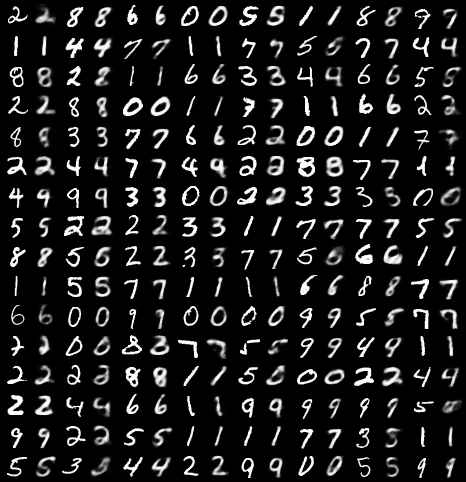 2 2 8 8 6 6 0 0 5 5 1 1 8 8 9 9
1 1 4 4 7 7 1 1 7 7 5 5 7 7 4 4
8 8 2 8 1 1 6 6 3 3 4 4 6 6 5 5
2 2 8 8 0 0 1 1 7 7 1 1 6 6 2 2
8 8 3 3 7 7 6 6 2 2 0 0 1 1 7 7
2 2 4 4 7 7 4 9 2 2 8 8 7 7 1 1
4 9 9 9 3 3 0 0 2 2 3 3 3 5 0 0
5 5 2 2 2 2 3 3 1 1 7 7 7 7 5 5
8 8 5 5 2 2 3 3 7 7 5 5 6 6 1 1
1 1 5 5 7 7 1 1 1 1 6 6 8 8 7 7
6 6 0 0 9 9 0 0 0 0 9 9 5 5 7 9
2 2 0 0 8 3 7 7 5 5 9 9 4 9 1 1
2 2 2 2 8 8 1 1 5 5 0 0 2 2 4 4
2 2 4 4 6 6 1 1 9 9 9 9 9 9 5
9 9 2 2 5 5 1 1 1 1 7 7 3 5 1 1
5 5 3 5 4 4 2 2 9 9 0 0 5 5 9 9